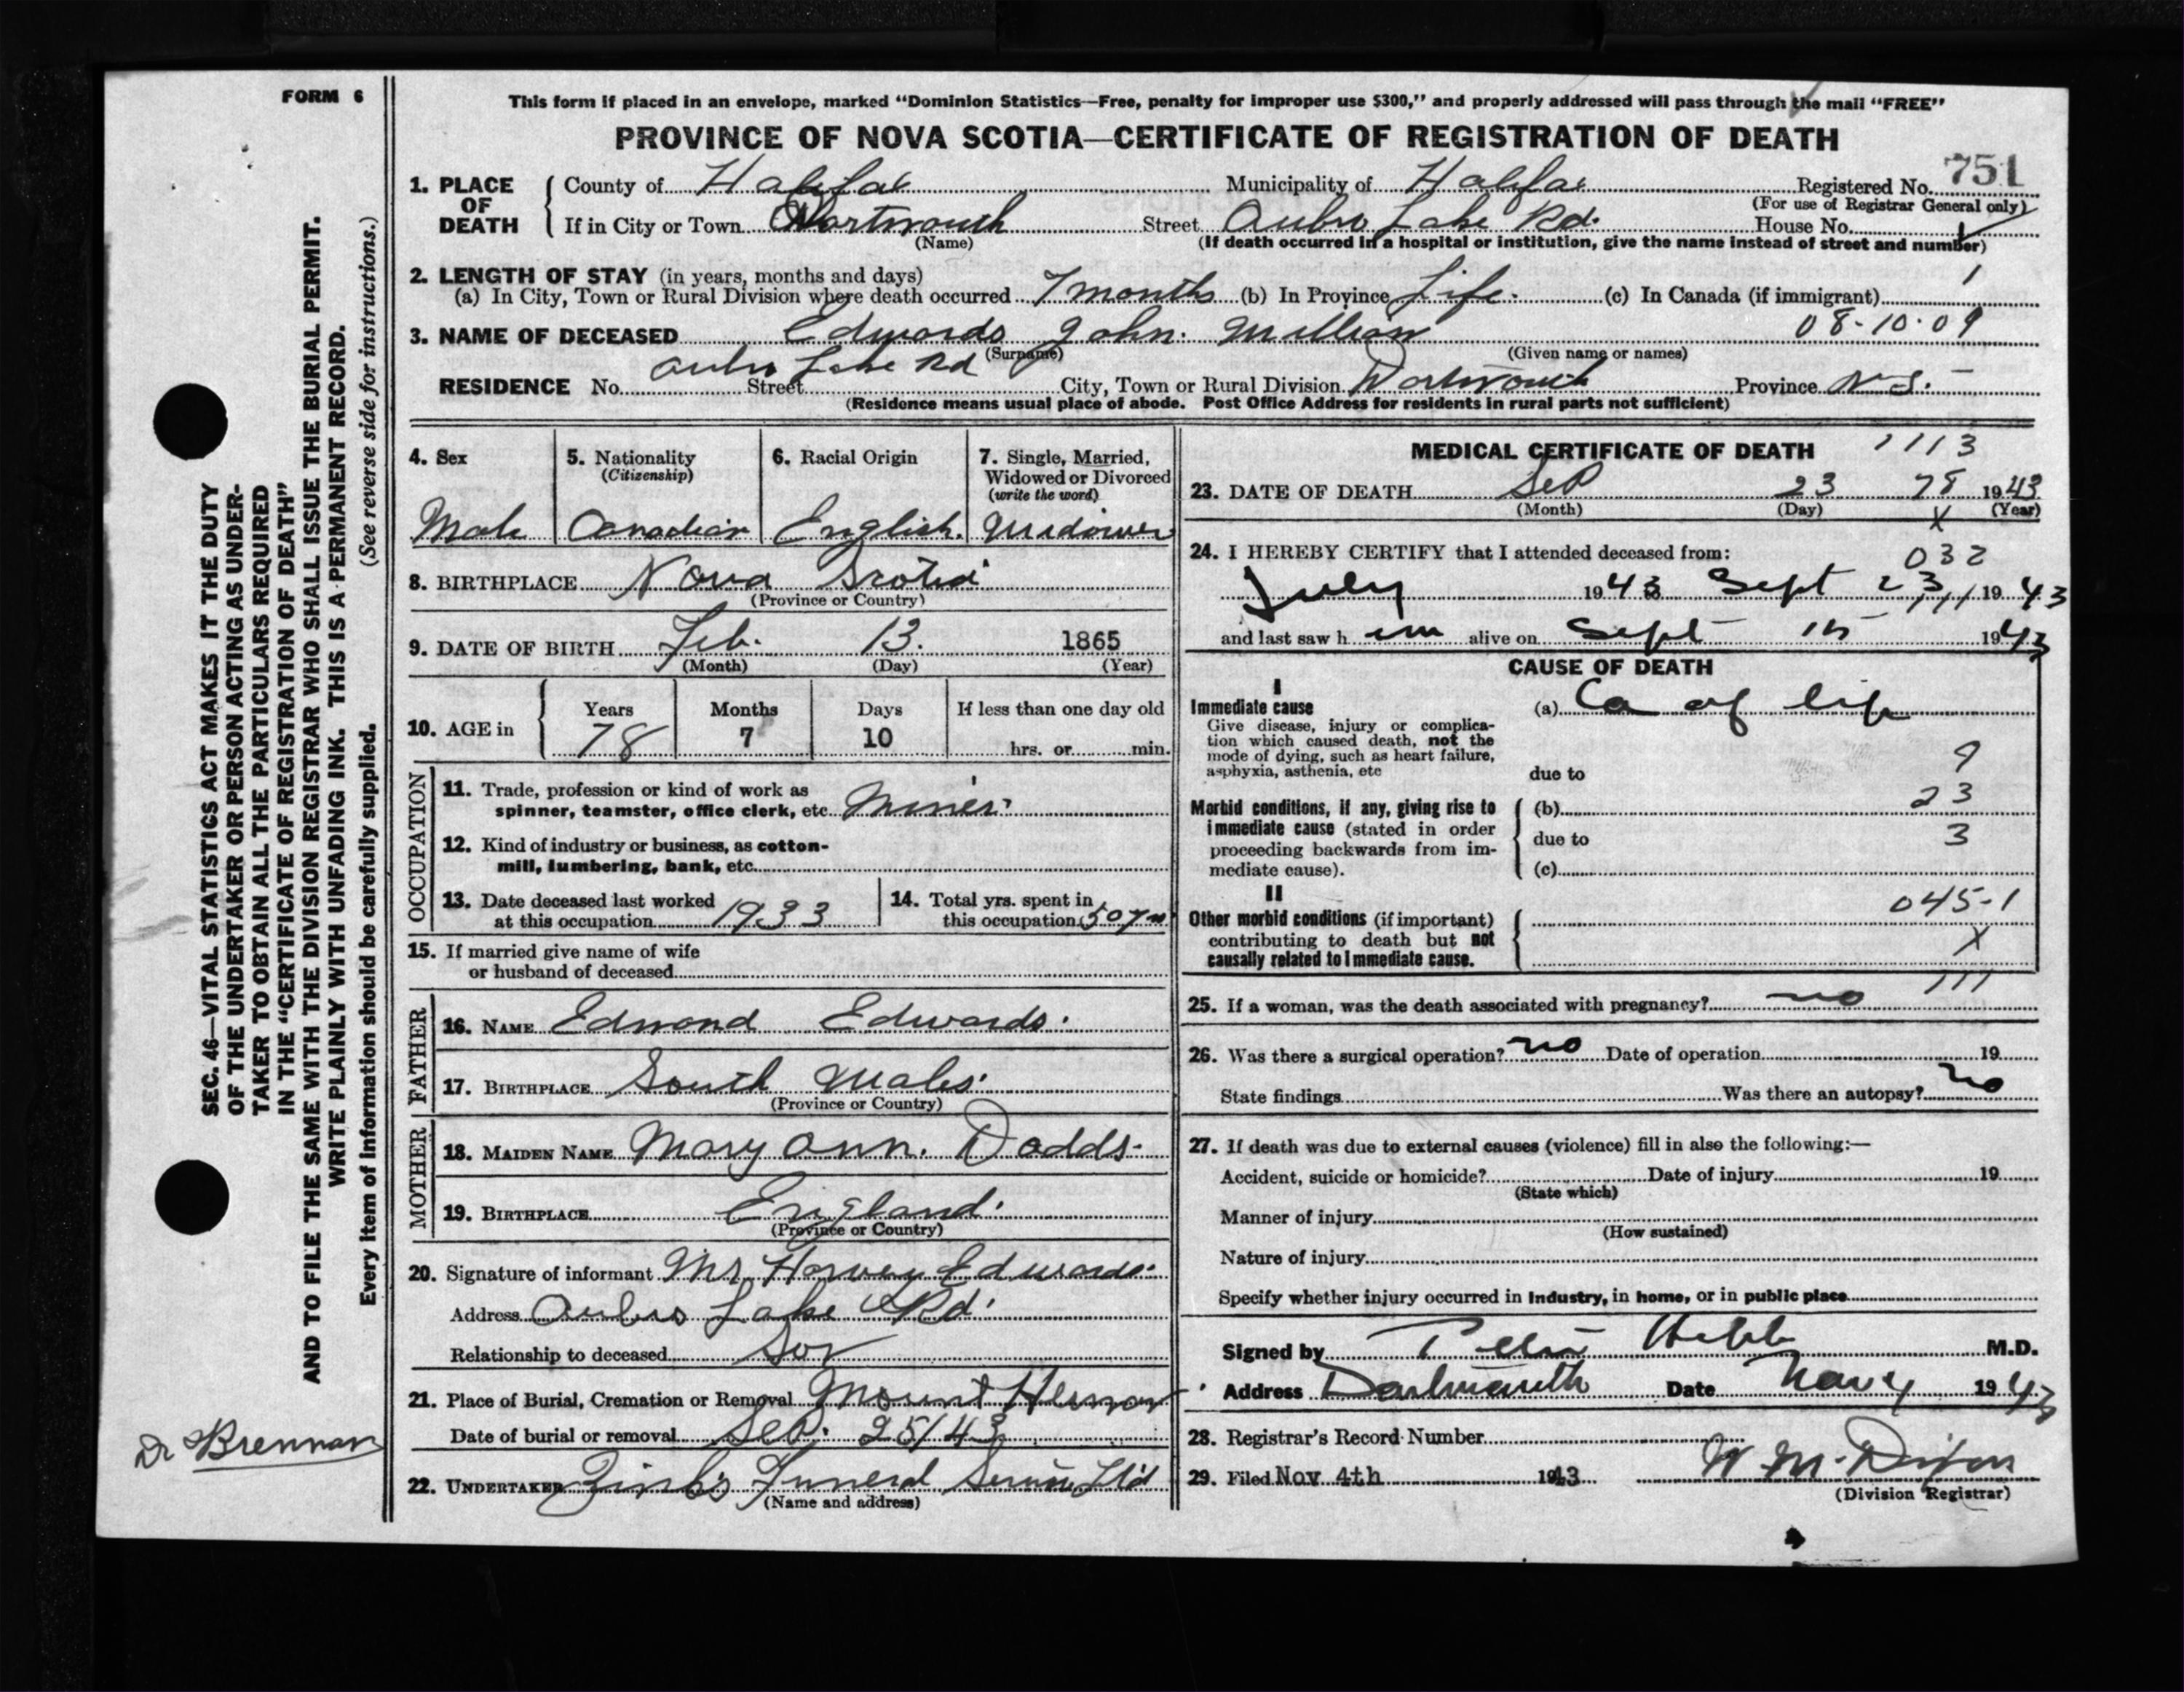 FORM 6
This form if placed in an envelope, marked "Dominion Statistics—Free, penalty for improper use $300," and properly addressed will pass through the mail "FREE"
PROVINCE OF NOVA SCOTIA—CERTIFICATE OF REGISTRATION OF DEATH
1. PLACE OF DEATH { County of Halifax Municipality of Halifax Registered No. 751
(For use of Registrar General only)
If in City or Town Dartmouth Street Lake Rd. House No.
(Name) (If death occurred in a hospital or institution, give the name instead of street and number)
2. LENGTH OF STAY (in years, months and days) 1
(a) In City, Town or Rural Division where death occurred 7 months (b) In Province Life. (c) In Canada (if immigrant)
3. NAME OF DECEASED Edwards John. William 08-10-09
(Surname) (Given name or names)
RESIDENCE No. Lake Rd Street City, Town or Rural Division Dartmouth Province N.S.
(Residence means usual place of abode. Post Office Address for residents in rural parts not sufficient)
4. Sex 5. Nationality (Citizenship) 6. Racial Origin 7. Single, Married, Widowed or Divorced (write the word)
Male Canadian English. Widower
8. BIRTHPLACE Nova Scotia
(Province or Country)
9. DATE OF BIRTH Feb. 13. 1865
(Month) (Day) (Year)
10. AGE in { Years Months Days If less than one day old
78 7 10 hrs. or min.
OCCUPATION
11. Trade, profession or kind of work as
spinner, teamster, office clerk, etc. Miner.
12. Kind of industry or business, as cotton-
mill, lumbering, bank, etc.
13. Date deceased last worked
at this occupation 1933
14. Total yrs. spent in
this occupation 50 yrs
15. If married give name of wife
or husband of deceased
FATHER
16. NAME Edmond Edwards.
17. BIRTHPLACE South Wales.
(Province or Country)
MOTHER
18. MAIDEN NAME Mary Ann. Dodds.
19. BIRTHPLACE England.
(Province or Country)
20. Signature of informant Mr. Harvey Edwards.
Address Lake Rd.
Relationship to deceased Son
21. Place of Burial, Cremation or Removal Mount Hermon
Date of burial or removal Sep. 25/43
22. UNDERTAKER Zink's Funeral Service Ltd
(Name and address)
MEDICAL CERTIFICATE OF DEATH 1113
23. DATE OF DEATH Sep 23 78 1943
(Month) (Day) X (Year)
24. I HEREBY CERTIFY that I attended deceased from: 032
July 1943 Sept 23 1943
and last saw him alive on Sept 15 1943
CAUSE OF DEATH
I
Immediate cause (a) Ca of lip
Give disease, injury or complica-
tion which caused death, not the
mode of dying, such as heart failure,
asphyxia, asthenia, etc due to 9
Morbid conditions, if any, giving rise to (b) 23
immediate cause (stated in order due to 3
proceeding backwards from im-
mediate cause). (c)
II
045-1
Other morbid conditions (if important)
contributing to death but not X
causally related to immediate cause.
111
25. If a woman, was the death associated with pregnancy? no
26. Was there a surgical operation? no Date of operation 19
State findings Was there an autopsy? no
27. If death was due to external causes (violence) fill in also the following:—
Accident, suicide or homicide? Date of injury 19
(State which)
Manner of injury
(How sustained)
Nature of injury
Specify whether injury occurred in industry, in home, or in public place
Signed by Hebb M.D.
Address Dartmouth Date Nov 4 1943
28. Registrar's Record Number
29. Filed Nov 4th 1943 W. M. Dixon
(Division Registrar)
SEC. 46—VITAL STATISTICS ACT MAKES IT THE DUTY
OF THE UNDERTAKER OR PERSON ACTING AS UNDER-
TAKER TO OBTAIN ALL THE PARTICULARS REQUIRED
IN THE "CERTIFICATE OF REGISTRATION OF DEATH"
AND TO FILE THE SAME WITH THE DIVISION REGISTRAR WHO SHALL ISSUE THE BURIAL PERMIT.
WRITE PLAINLY WITH UNFADING INK. THIS IS A PERMANENT RECORD.
Every item of information should be carefully supplied. (See reverse side for instructions.)
Dr Brennan